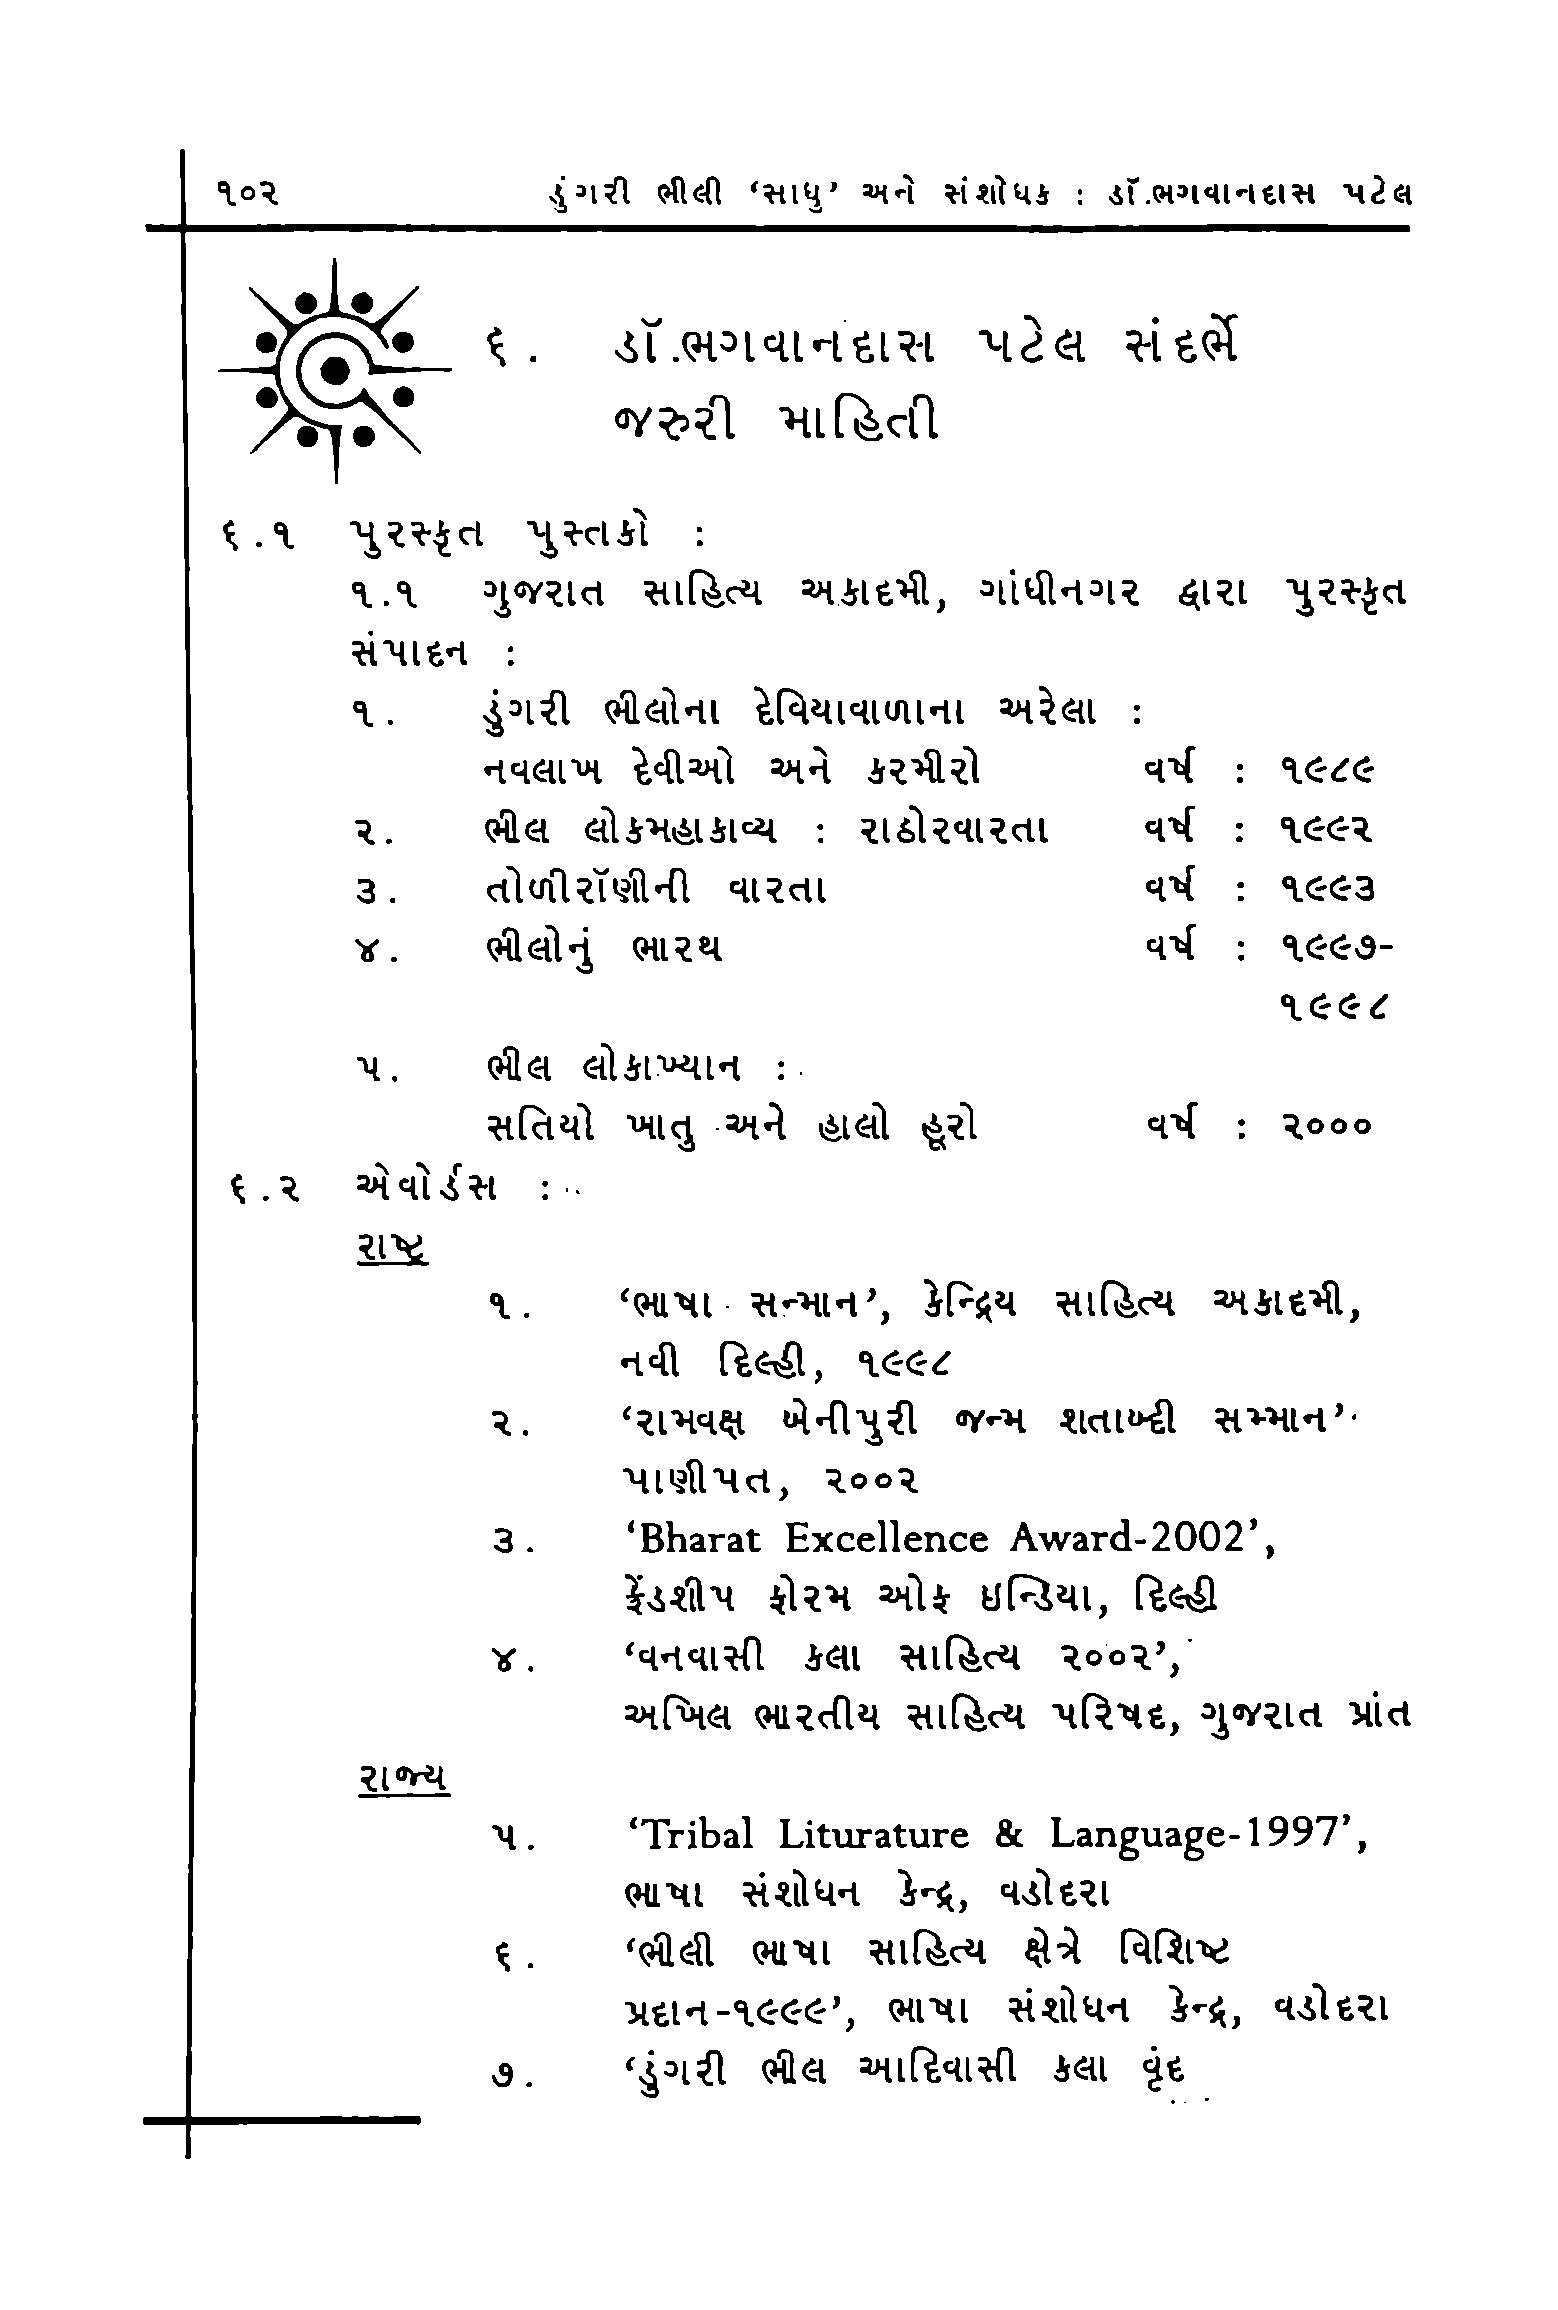 ૧૦૨ ડુંગરી ભીલી ‘સાધુ’ અને સંશોધક : ડૉ.ભગવાનદાસ પટેલ
૬. ડૉ.ભગવાનદાસ પટેલ સંદર્ભે
જરુરી માહિતી
૬.૧ પુરસ્કૃત પુસ્તકો :
૧.૧ ગુજરાત સાહિત્ય અકાદમી, ગાંધીનગર દ્વારા પુરસ્કૃત
સંપાદન :
૧. ડુંગરી ભીલોના દેવિયાવાળાના અરેલા :
નવલાખ દેવીઓ અને કરમીરો વર્ષ : ૧૯૮૯
૨. ભીલ લોકમહાકાવ્ય : રાઠોરવારતા વર્ષ : ૧૯૯૨
૩. તોળીરૉણીની વારતા વર્ષ : ૧૯૯૩
૪. ભીલોનું ભારથ વર્ષ : ૧૯૯૭-
૧૯૯૮
૫. ભીલ લોકાખ્યાન :
સતિયો ખાતુ અને હાલો હૂરો વર્ષ : ૨૦૦૦
૬.૨ એવોર્ડસ :
રાષ્ટ્ર
૧. ‘ભાષા સન્માન’, કેન્દ્રિય સાહિત્ય અકાદમી,
નવી દિલ્હી, ૧૯૯૮
૨. ‘રામવક્ષ બેનીપુરી જન્મ શતાબ્દી સમ્માન’
પાણીપત, ૨૦૦૨
૩. ‘Bharat Excellence Award-2002’,
ફ્રેંડશીપ ફોરમ ઓફ ઇન્ડિયા, દિલ્હી
૪. ‘વનવાસી કલા સાહિત્ય ૨૦૦૨’,
અખિલ ભારતીય સાહિત્ય પરિષદ, ગુજરાત પ્રાંત
રાજ્ય
૫. ‘Tribal Liturature & Language-1997’,
ભાષા સંશોધન કેન્દ્ર, વડોદરા
૬. ‘ભીલી ભાષા સાહિત્ય ક્ષેત્રે વિશિષ્ટ
પ્રદાન-૧૯૯૯’, ભાષા સંશોધન કેન્દ્ર, વડોદરા
૭. ‘ડુંગરી ભીલ આદિવાસી કલા વૃંદ